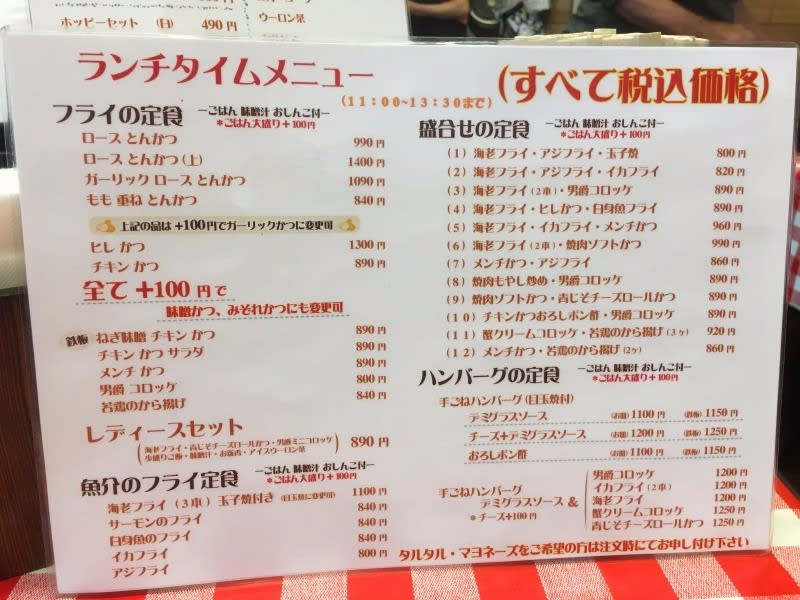 ホッピーセット (白) 490円
ウーロン茶
ランチタイムメニュー
(11:00~13:30まで)
(すべて税込価格)
フライの定食 ーごはん 味噌汁 おしんこ付ー
*ごはん大盛り+100円
ロース とんかつ 990円
ロース とんかつ(上) 1400円
ガーリック ロース とんかつ 1090円
もも 重ね とんかつ 840円
上記の品は +100円でガーリックかつに変更可
ヒレ かつ 1300円
チキン かつ 890円
全て +100円で
味噌かつ、みぞれかつにも変更可
鉄板 ねぎ味噌 チキン かつ 890円
チキン かつ サラダ 890円
メンチ かつ 890円
男爵 コロッケ 800円
若鶏のから揚げ 840円
レディースセット
(海老フライ・青じそチーズロールかつ・男爵ミニコロッケ
少盛りご飯・味噌汁・お新香・アイスウーロン茶) 890円
魚介のフライ定食 ーごはん 味噌汁 おしんこ付ー
*ごはん大盛り+100円
海老フライ (3本) 玉子焼付き (目玉焼に変更可) 1100円
サーモンのフライ 840円
白身魚のフライ 840円
イカフライ 840円
アジフライ 800円
盛合せの定食 ーごはん 味噌汁 おしんこ付ー
*ごはん大盛り+100円
(1) 海老フライ・アジフライ・玉子焼 800円
(2) 海老フライ・アジフライ・イカフライ 820円
(3) 海老フライ(2本)・男爵コロッケ 890円
(4) 海老フライ・ヒレかつ・白身魚フライ 890円
(5) 海老フライ・イカフライ・メンチかつ 960円
(6) 海老フライ(2本)・焼肉ソフトかつ 990円
(7) メンチかつ・アジフライ 860円
(8) 焼肉もやし炒め・男爵コロッケ 890円
(9) 焼肉ソフトかつ・青じそチーズロールかつ 890円
(10) チキンかつおろしポン酢・男爵コロッケ 890円
(11) 蟹クリームコロッケ・若鶏のから揚げ(3ヶ) 920円
(12) メンチかつ・若鶏のから揚げ(2ヶ) 860円
ハンバーグの定食 ーごはん 味噌汁 おしんこ付ー
*ごはん大盛り+100円
手ごねハンバーグ(目玉焼付)
デミグラスソース (お皿) 1100円 (鉄板) 1150円
チーズ+デミグラスソース (お皿) 1200円 (鉄板) 1250円
おろしポン酢 (お皿) 1100円 (鉄板) 1150円
手ごねハンバーグ
デミグラスソース &
*チーズ+100円
男爵コロッケ 1200円
イカフライ(2本) 1200円
海老フライ 1200円
蟹クリームコロッケ 1250円
青じそチーズロールかつ 1250円
タルタル・マヨネーズをご希望の方は注文時にてお申し付け下さい